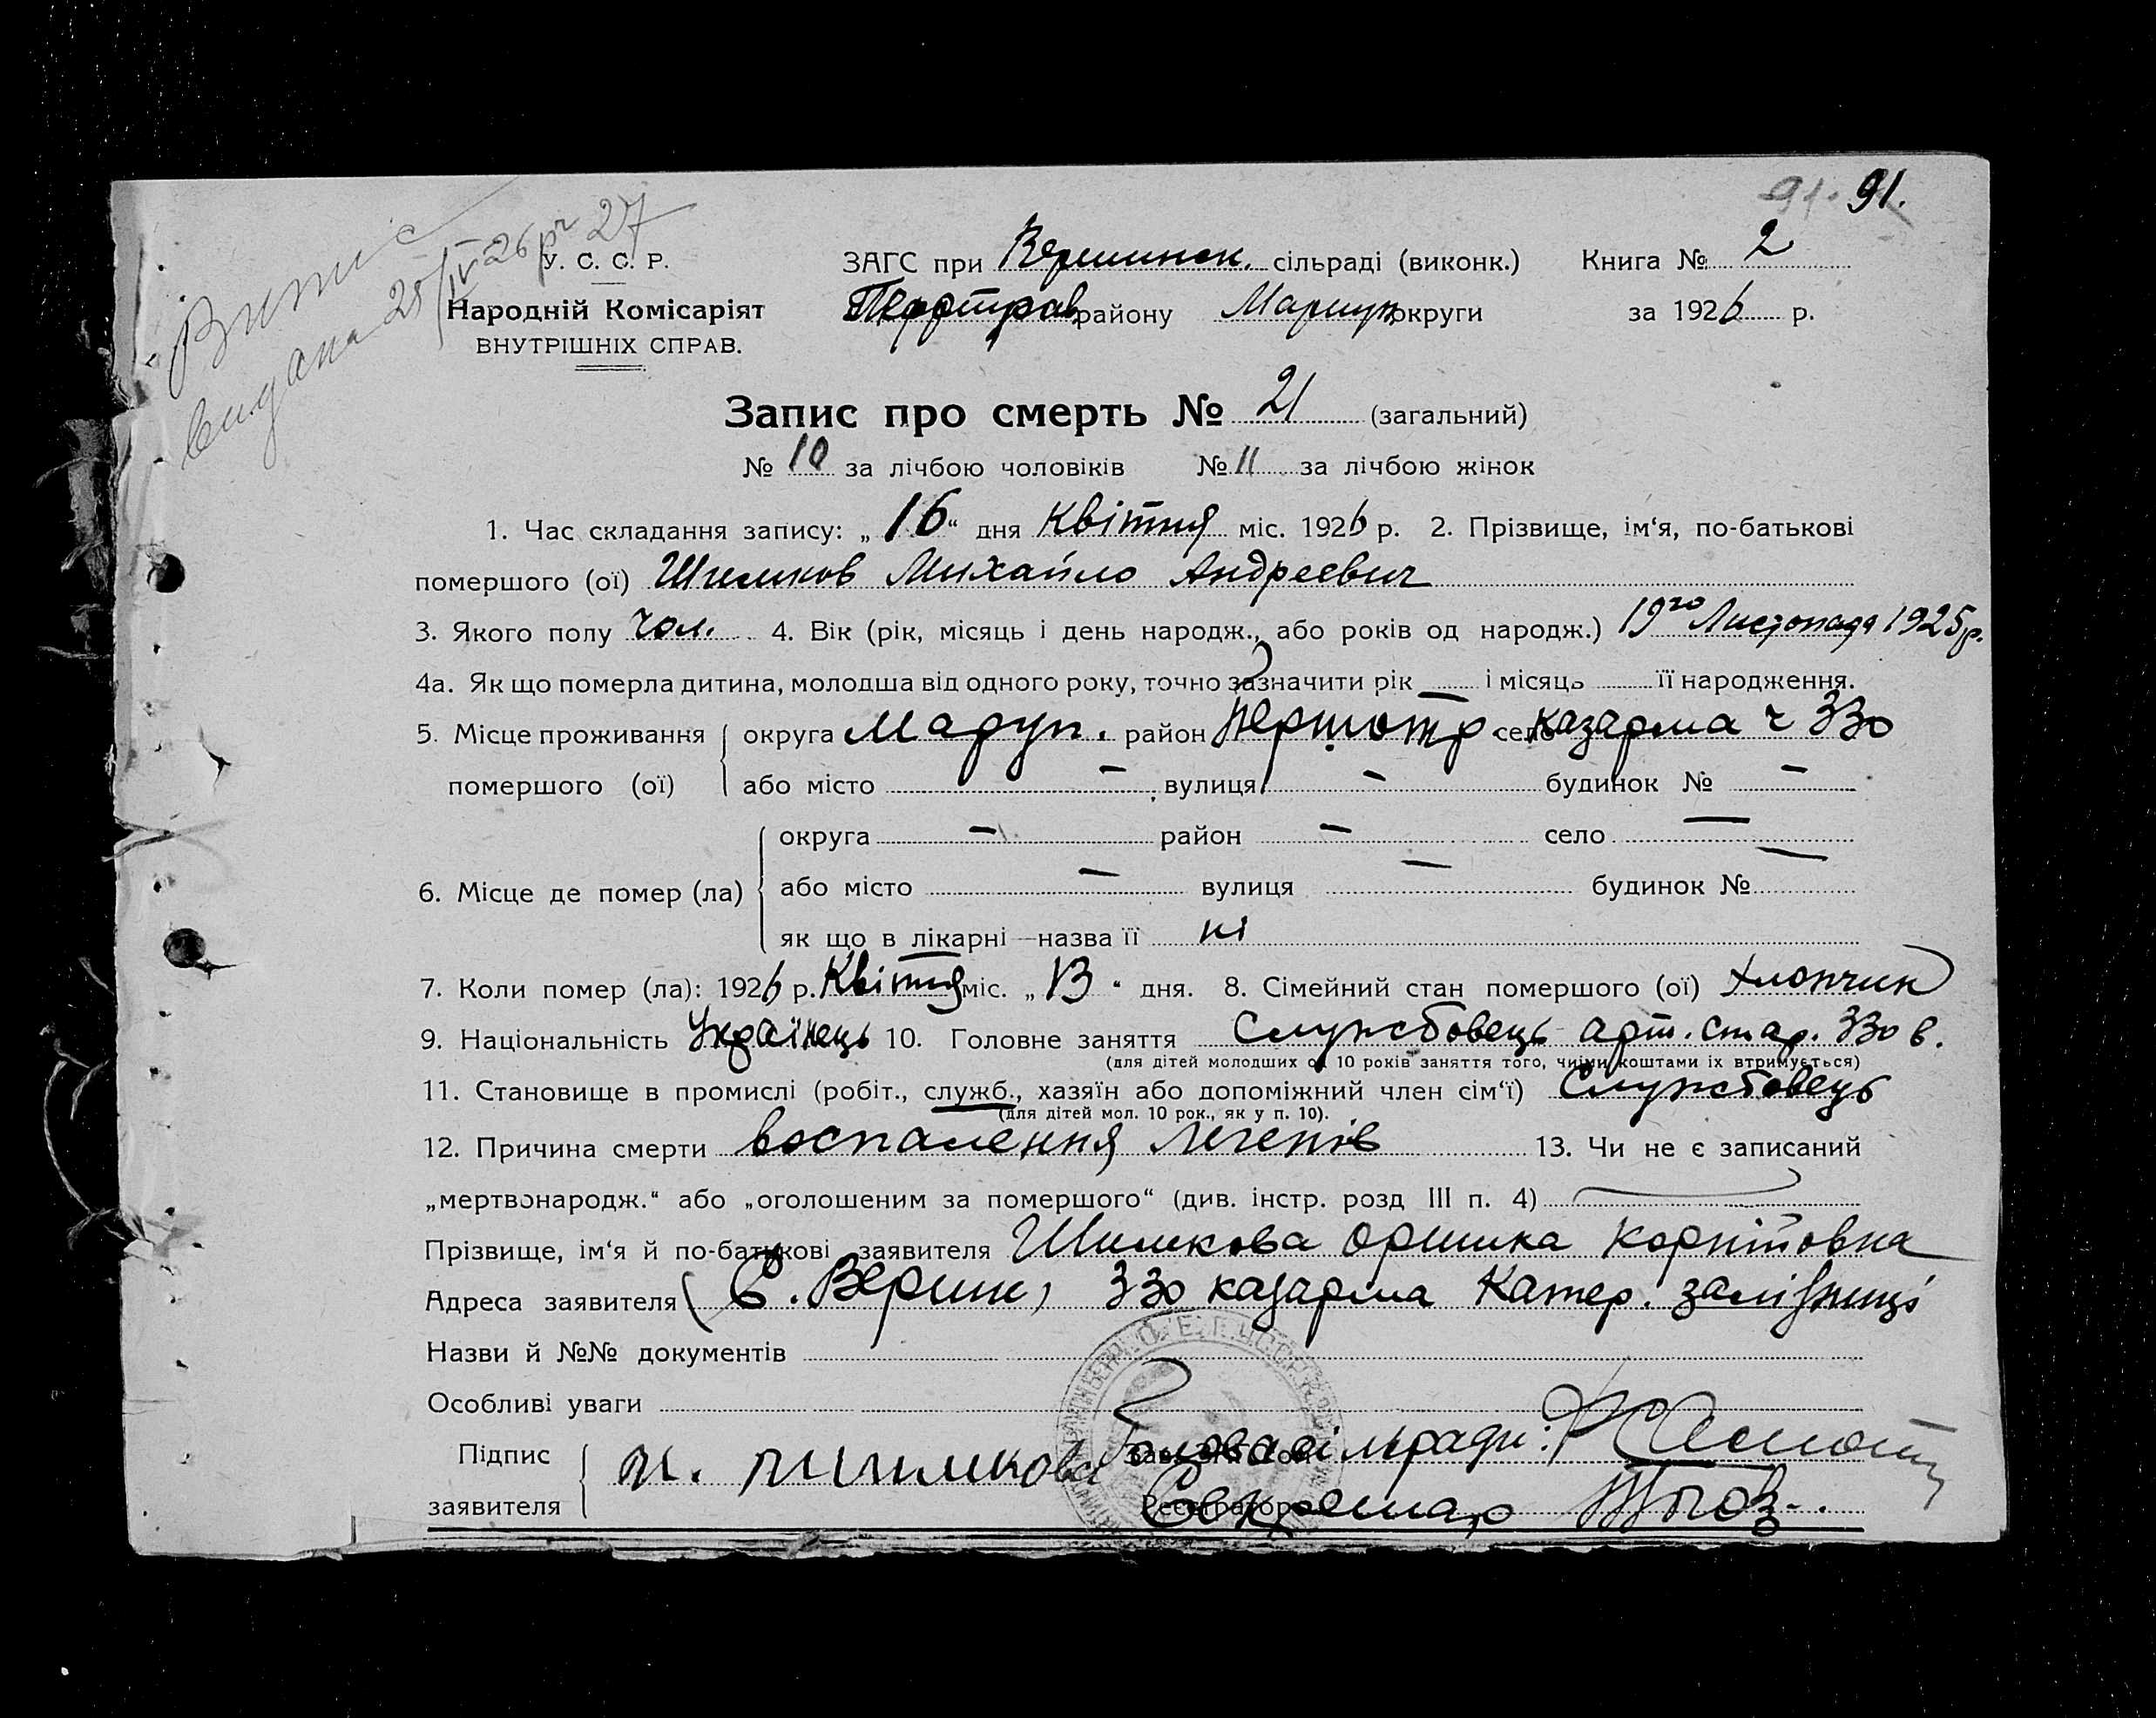 91. 91.
Витис
видана 25/IV 26 р № 27
У. С. С. Р.
Народній Комісаріят
ВНУТРІШНІХ СПРАВ.
ЗАГС при Вершинск. сільраді (виконк.) Книга № 2
району Мариуп округи за 1926 р.
Запис про смерть № 21 (загальний)
№ 10 за лічбою чоловіків № 11 за лічбою жінок
1. Час складання запису: „16“ дня Квітня міс. 1926 р. 2. Прізвище, ім‘я, по-батькові
помершого (ої) Шишков Михайло Андреевич
3. Якого полу чол. 4. Вік (рік, місяць і день народж., або років од народж.) 19го Листопада 1925 р.
4а. Як що померла дитина, молодша від одного року, точно зазначити рік — і місяць її народження.
5. Місце проживання помершого (ої) округа Мариуп. район Першотр. село казарма ч 330
або місто — вулиця — будинок № —
6. Місце де помер (ла) округа — район — село —
або місто — вулиця — будинок № —
як що в лікарні—назва її ні
7. Коли помер (ла): 1926 р. Квітня міс. „13“ дня. 8. Сімейний стан помершого (ої) хлопчик
9. Національність Українець 10. Головне заняття Службовець арт. стар. 330 в.
(для дітей молодших од 10 років заняття того, чиїми коштами їх втримується)
11. Становище в промислі (робіт., служб., хазяїн або допоміжний член сім‘ї) Службовець
(для дітей мол. 10 рок., як у п. 10).
12. Причина смерти воспалення легенів 13. Чи не є записаний
„мертвонародж.“ або „оголошеним за помершого“ (див. інстр. розд III п. 4)
Прізвище, ім‘я й по-батькові заявителя Шишкова Оришка Карпіовна
Адреса заявителя С. Вершин, 330 казарма Катер. залізниці
Назви й №№ документів
Особливі уваги
Підпис заявителя Шишкова
Голова сільради:
Секретар